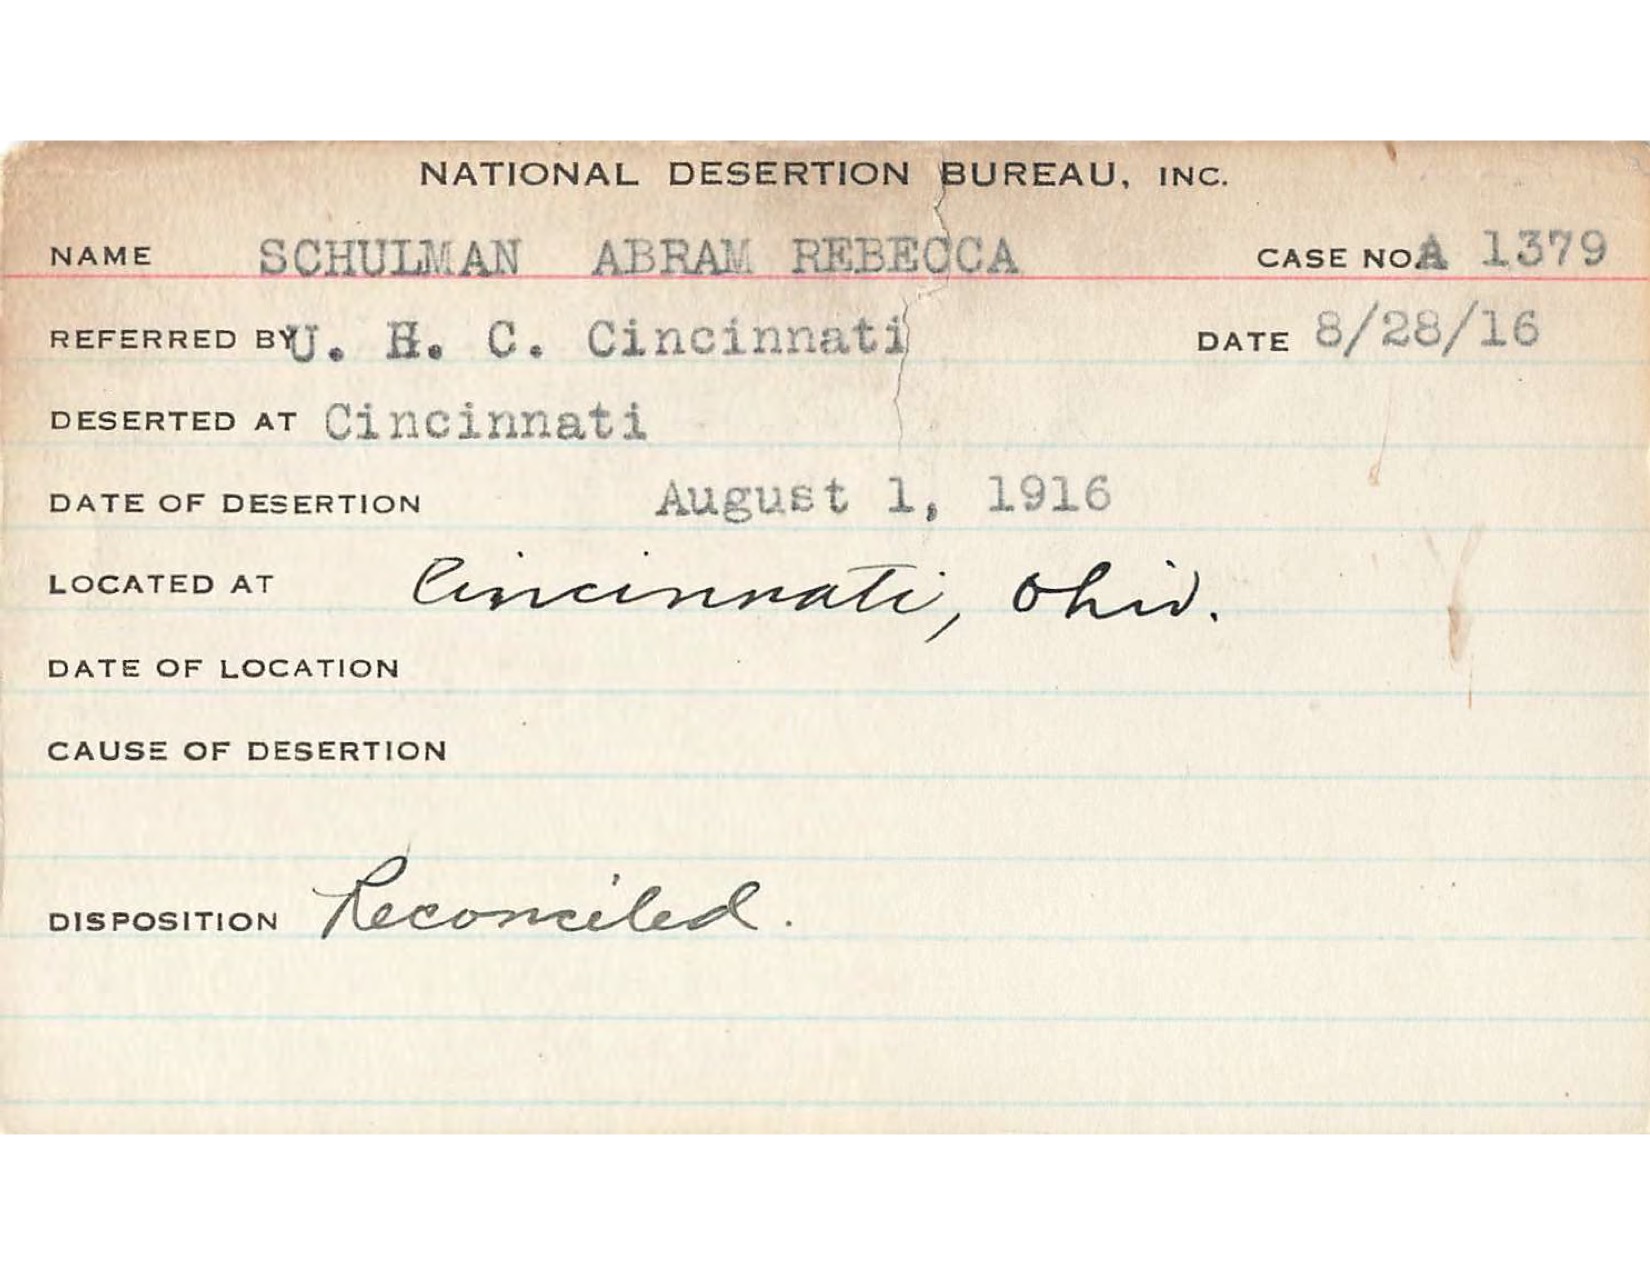 NATIONAL DESERTION BUREAU, INC.
NAME SCHULMAN ABRAM REBECCA CASE NO. A 1379
REFERRED BY U. H. C. Cincinnati DATE 8/28/16
DESERTED AT Cincinnati
DATE OF DESERTION August 1, 1916
LOCATED AT Cincinnati, Ohio.
DATE OF LOCATION
CAUSE OF DESERTION
DISPOSITION Reconciled.